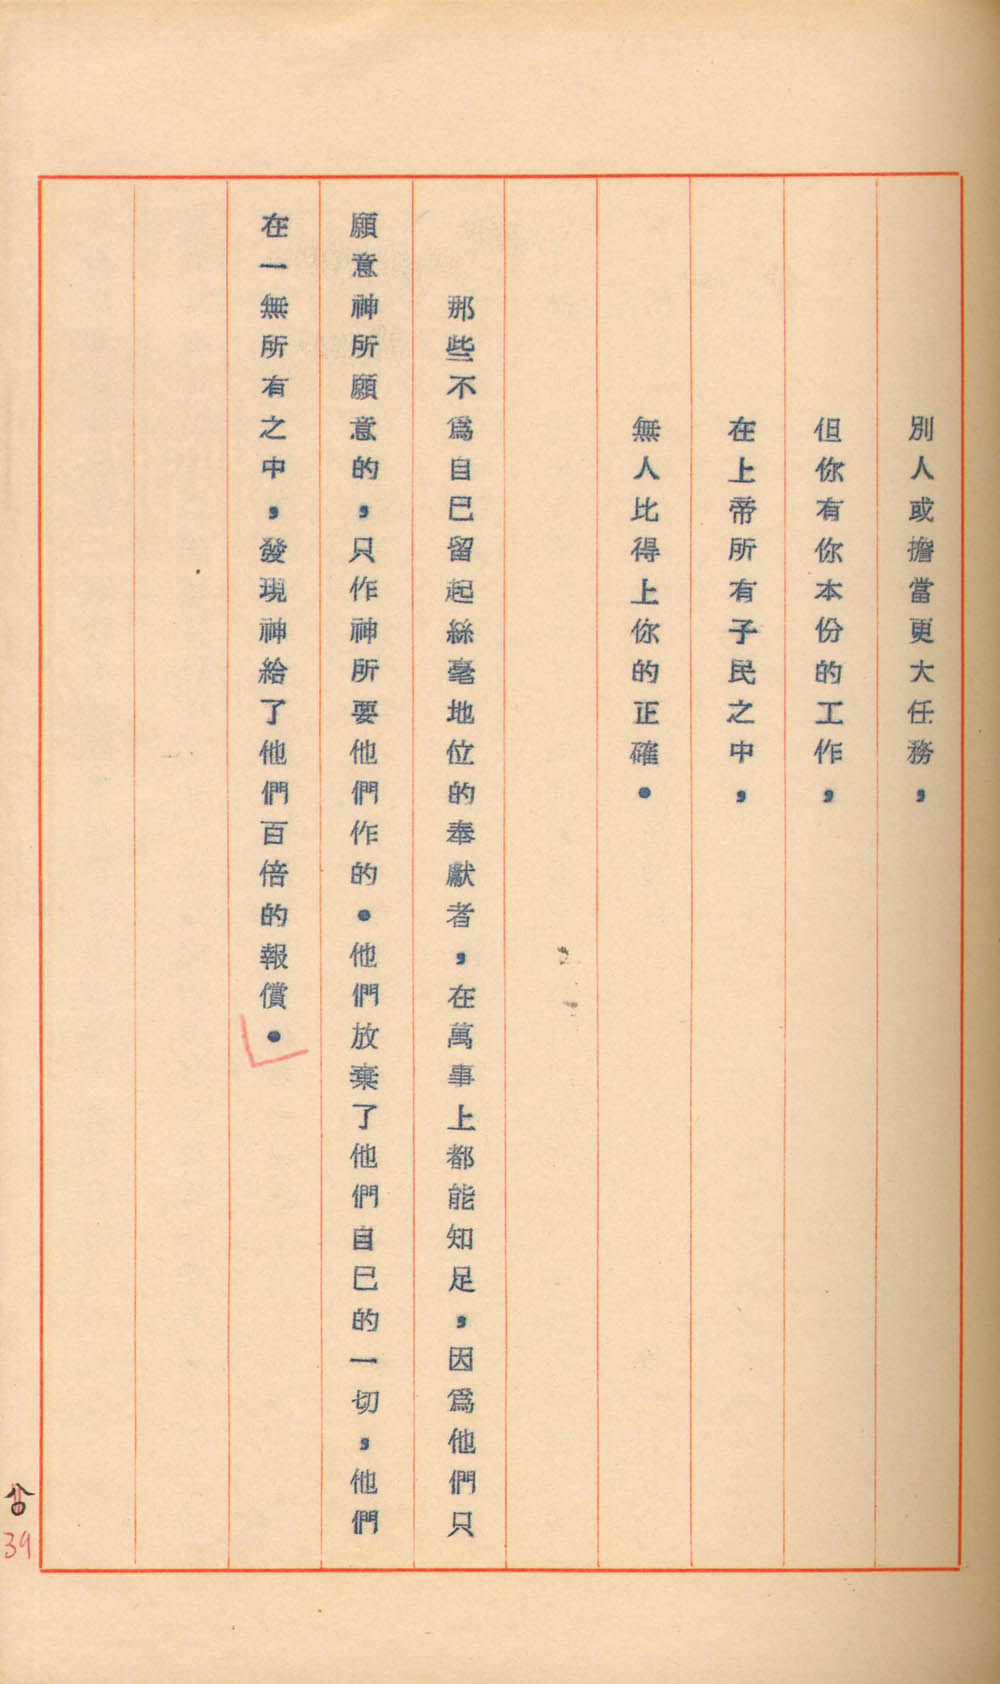 別人或擔當更大任務，
但你有你本份的工作，
在上帝所有子民之中，
無人比得上你的正確．
那些不爲自已留起絲毫地位的奉獻者，在萬事上都能知足，因爲他們只
願意神所願意的，只作神所要他們作的．他們放棄了他們自已的一切，他們
在一無所有之中，發現神給了他們百倍的報償．
39